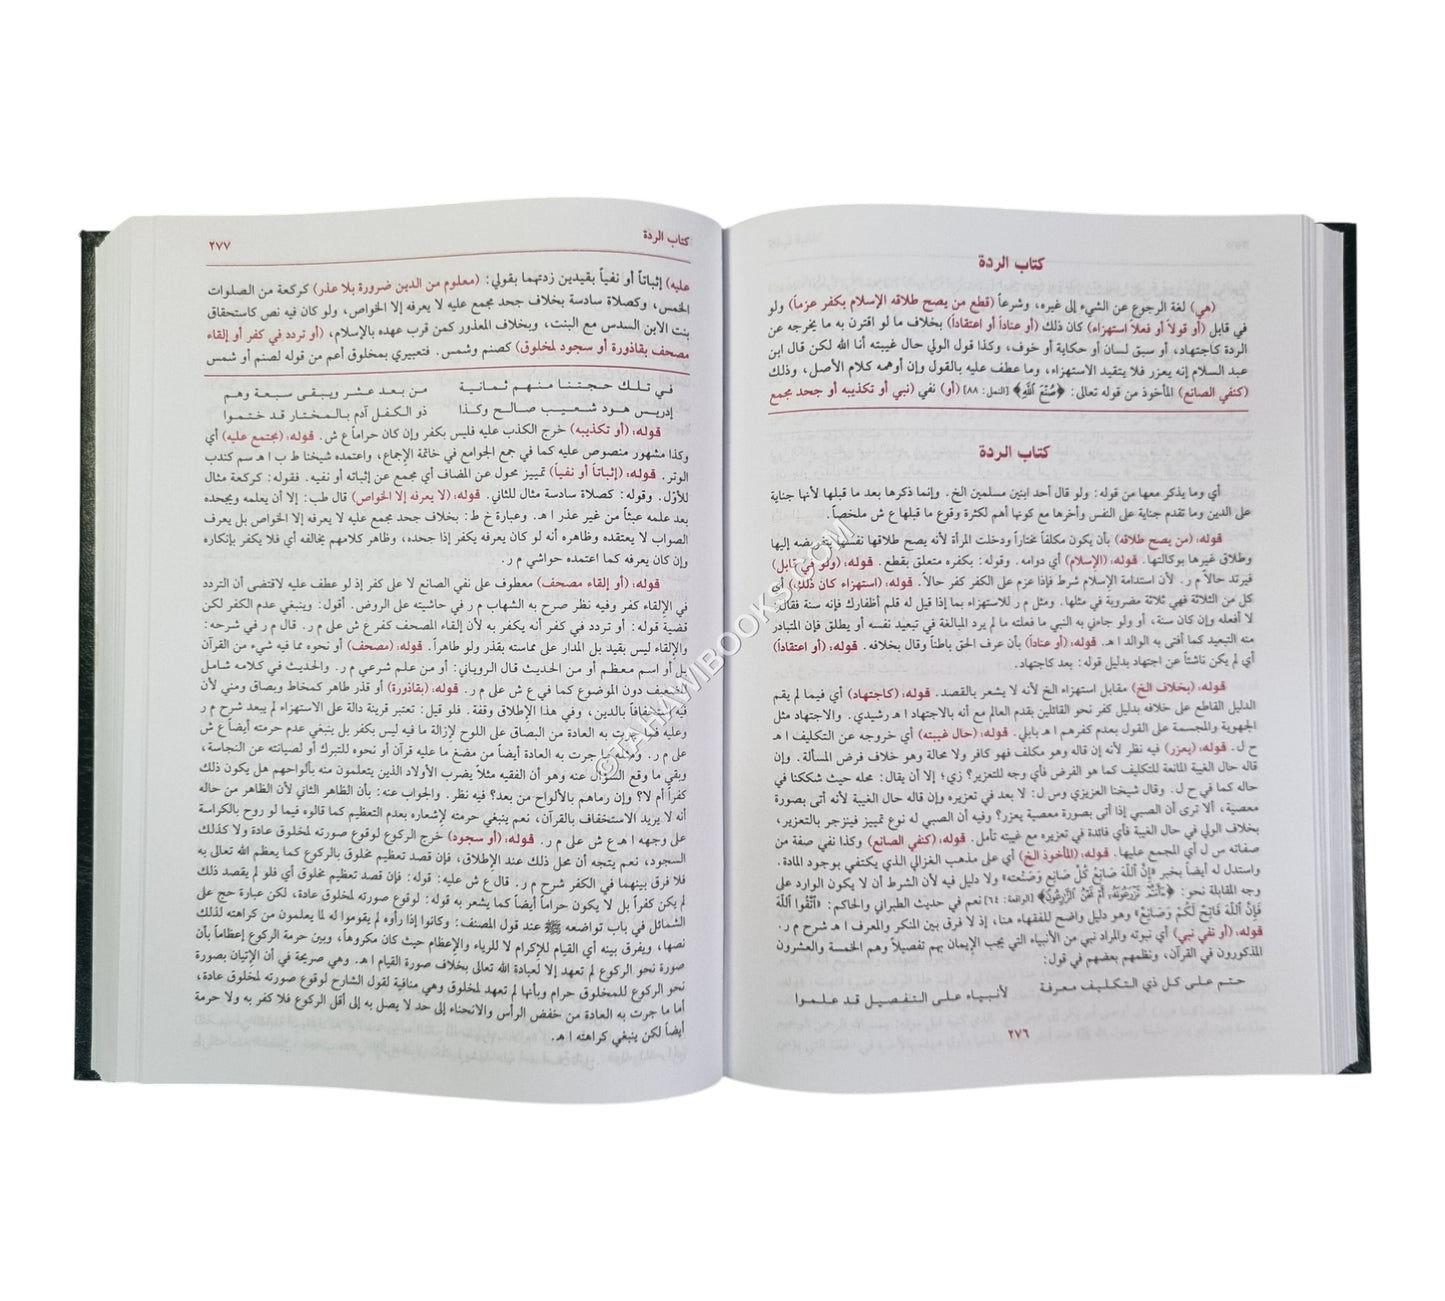 كتاب الردة
(هي) لغة الرجوع عن الشيء إلى غيره، وشرعاً (قطع من يصح طلاقه الإسلام بكفر عزماً) ولو
في قابل (أو قولاً أو فعلاً استهزاء) كان ذلك (أو عناداً أو اعتقاداً) بخلاف ما لو اقترن به ما يخرجه عن
الردة كاجتهاد، أو سبق لسان أو حكاية أو خوف، وكذا قول الولي حال غيبته أنا الله لكن قال ابن
عبد السلام إنه يعزر فلا يتقيد الاستهزاء، وما عطف عليه بالقول وإن أوهمه كلام الأصل، وذلك
(كنفي الصانع) المأخوذ من قوله تعالى: ﴿صُنْعَ اللَّهِ﴾ [النمل: ٨٨] (أو) نفي (نبي أو تكذيبه أو جحد مجمع
كتاب الردة
أي وما يذكر معها من قوله: ولو قال أحد ابنين مسلمين الخ. وإنما ذكرها بعد ما قبلها لأنها جناية
على الدين وما تقدم جناية على النفس وأخرها مع كونها أهم لكثرة وقوع ما قبلها ع ش ملخصاً.
قوله: (من يصح طلاقه) بأن يكون مكلفاً مختاراً ودخلت المرأة لأنه يصح طلاقها نفسها بتفويضه إليها
وطلاق غيرها بوكالتها. قوله: (الإسلام) أي دوامه. وقوله: بكفره متعلق بقطع. قوله: (ولو في قابل)
فيرتد حالاً م ر. لأن استدامة الإسلام شرط فإذا عزم على الكفر كفر حالاً. قوله: (استهزاء كان ذلك) أي
كل من الثلاثة فهي ثلاثة مضروبة في مثلها. ومثل م ر للاستهزاء بما إذا قيل له قلم أظفارك فإنه سنة فقال:
لا أفعله وإن كان سنة، أو ولو جاءني به النبي ما فعلته ما لم يرد المبالغة في تبعيد نفسه أو يطلق فإن المتبادر
منه التبعيد كما أفتى به الوالد ا هـ. قوله: (أو عناداً) بأن عرف الحق باطناً وقال بخلافه. قوله: (أو اعتقاداً)
أي لم يكن ناشئاً عن اجتهاد بدليل قوله: بعد كاجتهاد.
قوله: (بخلاف الخ) مقابل استهزاء الخ لأنه لا يشعر بالقصد. قوله: (كاجتهاد) أي فيما لم يقم
الدليل القاطع على خلافه بدليل كفر نحو القائلين بقدم العالم مع أنه بالاجتهاد ا هـ رشيدي. والاجتهاد مثل
الجهوية والمجسمة على القول بعدم كفرهم ا هـ بابلي. قوله: (حال غيبته) أي خروجه عن التكليف ا هـ
ح ل. قوله: (يعزر) فيه نظر لأنه إن قاله وهو مكلف فهو كافر ولا محالة وهو خلاف فرض المسألة. وإن
قاله حال الغيبة المانعة للتكليف كما هو الفرض فأي وجه للتعزير؟ زي؛ إلا أن يقال: محله حيث شككنا في
حاله كما في ح ل. وقال شيخنا العزيزي وس ل: لا بعد في تعزيره وإن قاله حال الغيبة لأنه أتى بصورة
معصية، ألا ترى أن الصبي إذا أتى بصورة معصية يعزر؟ وفيه أن الصبي له نوع تمييز فينزجر بالتعزير،
بخلاف الولي في حال الغيبة فأي فائدة في تعزيره مع غيبته تأمل. قوله: (كنفي الصانع) وكذا نفي صفة من
صفاته س ل أي المجمع عليها. قوله: (المأخوذ الخ) أي على مذهب الغزالي الذي يكتفي بوجود المادة.
واستدل له أيضاً بخبر «إِنَّ اللَّهَ صَانِعُ كُلِّ صَانِعٍ وَصَنْعَتِه» ولا دليل فيه لأن الشرط أن لا يكون الوارد على
وجه المقابلة نحو: ﴿ءَأَنتُمْ تَزْرَعُونَهُ أَمْ نَحْنُ الزَّارِعُونَ﴾ [الواقعة: ٦٤] نعم في حديث الطبراني والحاكم: «اتَّقُوا اللَّهَ
فَإِنَّ اللَّهَ فَاتِحٌ لَكُمْ وَصَانِعٌ» وهو دليل واضح للفقهاء هنا، إذ لا فرق بين المنكر والمعرف ا هـ شرح م ر.
قوله: (أو نفي نبي) أي نبوته والمراد نبي من الأنبياء التي يجب الإيمان بهم تفصيلاً وهم الخمسة والعشرون
المذكورون في القرآن، ونظمهم بعضهم في قول:
حتم على كل ذي التكليف معرفة لأنبياء على التفصيل قد علموا
٢٧٦
كتاب الردة ٢٧٧
عليه) إثباتاً أو نفياً بقيدين زدتهما بقولي: (معلوم من الدين ضرورة بلا عذر) كركعة من الصلوات
الخمس، وكصلاة سادسة بخلاف جحد مجمع عليه لا يعرفه إلا الخواص، ولو كان فيه نص كاستحقاق
بنت الابن السدس مع البنت، وبخلاف المعذور كمن قرب عهده بالإسلام، (أو تردد في كفر أو إلقاء
مصحف بقاذورة أو سجود لمخلوق) كصنم وشمس. فتعبيري بمخلوق أعم من قوله لصنم أو شمس
في تلك حجتنا منهم ثمانية من بعد عشر ويبقى سبعة وهم
إدريس هود شعيب صالح وكذا ذو الكفل آدم بالمختار قد ختموا
قوله: (أو تكذيبه) خرج الكذب عليه فليس بكفر وإن كان حراماً ع ش. قوله: (مجتمع عليه) أي
وكذا مشهور منصوص عليه كما في جمع الجوامع في خاتمة الإجماع، واعتمده شيخنا ط ب ا هـ سم كندب
الوتر. قوله: (إثباتاً أو نفياً) تمييز محول عن المضاف أي مجمع عن إثباته أو نفيه. فقوله: كركعة مثال
للأوّل. وقوله: كصلاة سادسة مثال للثاني. قوله: (لا يعرفه إلا الخواص) قال طب: إلا أن يعلمه ويجحده
بعد علمه عبثاً من غير عذر ا هـ. وعبارة خ ط: بخلاف جحد مجمع عليه لا يعرفه إلا الخواص بل يعرف
الصواب لا يعتقده وظاهره أنه لو كان يعرفه يكفر إذا جحده، وظاهر كلامهم يخالفه أي فلا يكفر بإنكاره
وإن كان يعرفه كما اعتمده حواشي م ر.
قوله: (أو إلقاء مصحف) معطوف على نفي الصانع لا على كفر إذ لو عطف عليه لاقتضى أن التردد
في الإلقاء كفر وفيه نظر صرح به الشهاب م ر في حاشيته على الروض. أقول: وينبغي عدم الكفر لكن
قضية قوله: أو تردد في كفر أنه يكفر به لأن إلقاء المصحف كفرع ش على م ر. قال م ر في شرحه:
والإلقاء ليس بقيد بل المدار على مماسته بقذر ولو طاهراً. قوله: (مصحف) أو نحوه مما فيه شيء من القرآن
بل أو اسم معظم أو من الحديث قال الروياني: أو من علم شرعي م ر. والحديث في كلامه شامل
للضعيف دون الموضوع كما في ع ش على م ر. قوله: (بقاذورة) أو قذر طاهر كمخاط وبصاق ومني لأن
فيه استخفافاً بالدين، وفي هذا الإطلاق وقفة. فلو قيل: تعتبر قرينة دالة على الاستهزاء لم يبعد شرح م ر
وعليه فما جرت به العادة من البصاق على اللوح لإزالة ما فيه ليس بكفر بل ينبغي عدم حرمته أيضاً ع ش
على م ر. ومثله ما جرت به العادة أيضاً من مضغ ما عليه قرآن أو نحوه للتبرك أو لصيانته عن النجاسة،
وبقي ما وقع السؤال عنه وهو أن الفقيه مثلاً يضرب الأولاد الذين يتعلمون منه بألواحهم هل يكون ذلك
كفراً أم لا؟ وإن رماهم بالألواح من بعد؟ فيه نظر. والجواب عنه: بأن الظاهر الثاني لأن الظاهر من حاله
أنه لا يريد الاستخفاف بالقرآن، نعم ينبغي حرمته لإشعاره بعدم التعظيم كما قالوه فيما لو روح بالكراسة
على وجهه ا هـ ع ش على م ر. قوله: (أو سجود) خرج الركوع لوقوع صورته لمخلوق عادة ولا كذلك
السجود، نعم يتجه أن محل ذلك عند الإطلاق، فإن قصد تعظيم مخلوق بالركوع كما يعظم الله تعالى به
فلا فرق بينهما في الكفر شرح م ر. قال ع ش عليه: قوله: فإن قصد تعظيم مخلوق أي فلو لم يقصد ذلك
لم يكن كفراً بل لا يكون حراماً أيضاً كما يشعر به قوله: لوقوع صورته لمخلوق عادة، لكن عبارة حج على
الشمائل في باب تواضعه ﷺ عند قول المصنف: وكانوا إذا رأوه لم يقوموا له لما يعلمون من كراهته لذلك
نصها، ويفرق بينه أي القيام للإكرام لا للرياء والإعظام حيث كان مكروهاً، وبين حرمة الركوع إعظاماً بأن
صورة نحو الركوع لم تعهد إلا لعبادة الله تعالى بخلاف صورة القيام ا هـ. وهي صريحة في أن الإتيان بصورة
نحو الركوع للمخلوق حرام وبأنها لم تعهد لمخلوق وهي منافية لقول الشارح لوقوع صورته لمخلوق عادة،
أما ما جرت به العادة من خفض الرأس والانحناء إلى حد لا يصل به إلى أقل الركوع فلا كفر به ولا حرمة
أيضاً لكن ينبغي كراهته ا هـ.
©TAHAWIBOOKS.COM